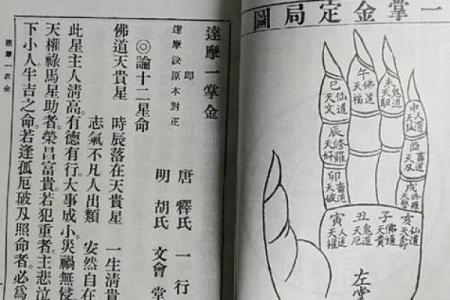 一掌金定局圖
午佛道天福
未鬼道天馹
巳仙道天文
申人道天孤
辰修羅天奸
酉畜道天刃
卯畜道天破
戌修羅天藝
寅人道天權
丑鬼道天厄
子佛道天貴
亥仙道天壽
左掌
達摩一掌金
卽
達摩訣原本對正
唐釋氏一行
明胡氏文會堂
◎論十二星命
佛道天貴星 時辰落在天貴星 一生清貴
志氣不凡人出類 安然自在
此星主人淸高有德有行大事成小災禍無侵
天權祿馬星助者榮昌富貴若犯重者主悲泣
下小人牛吉之命若逢孤厄破刄照命者必爲
達摩一掌金